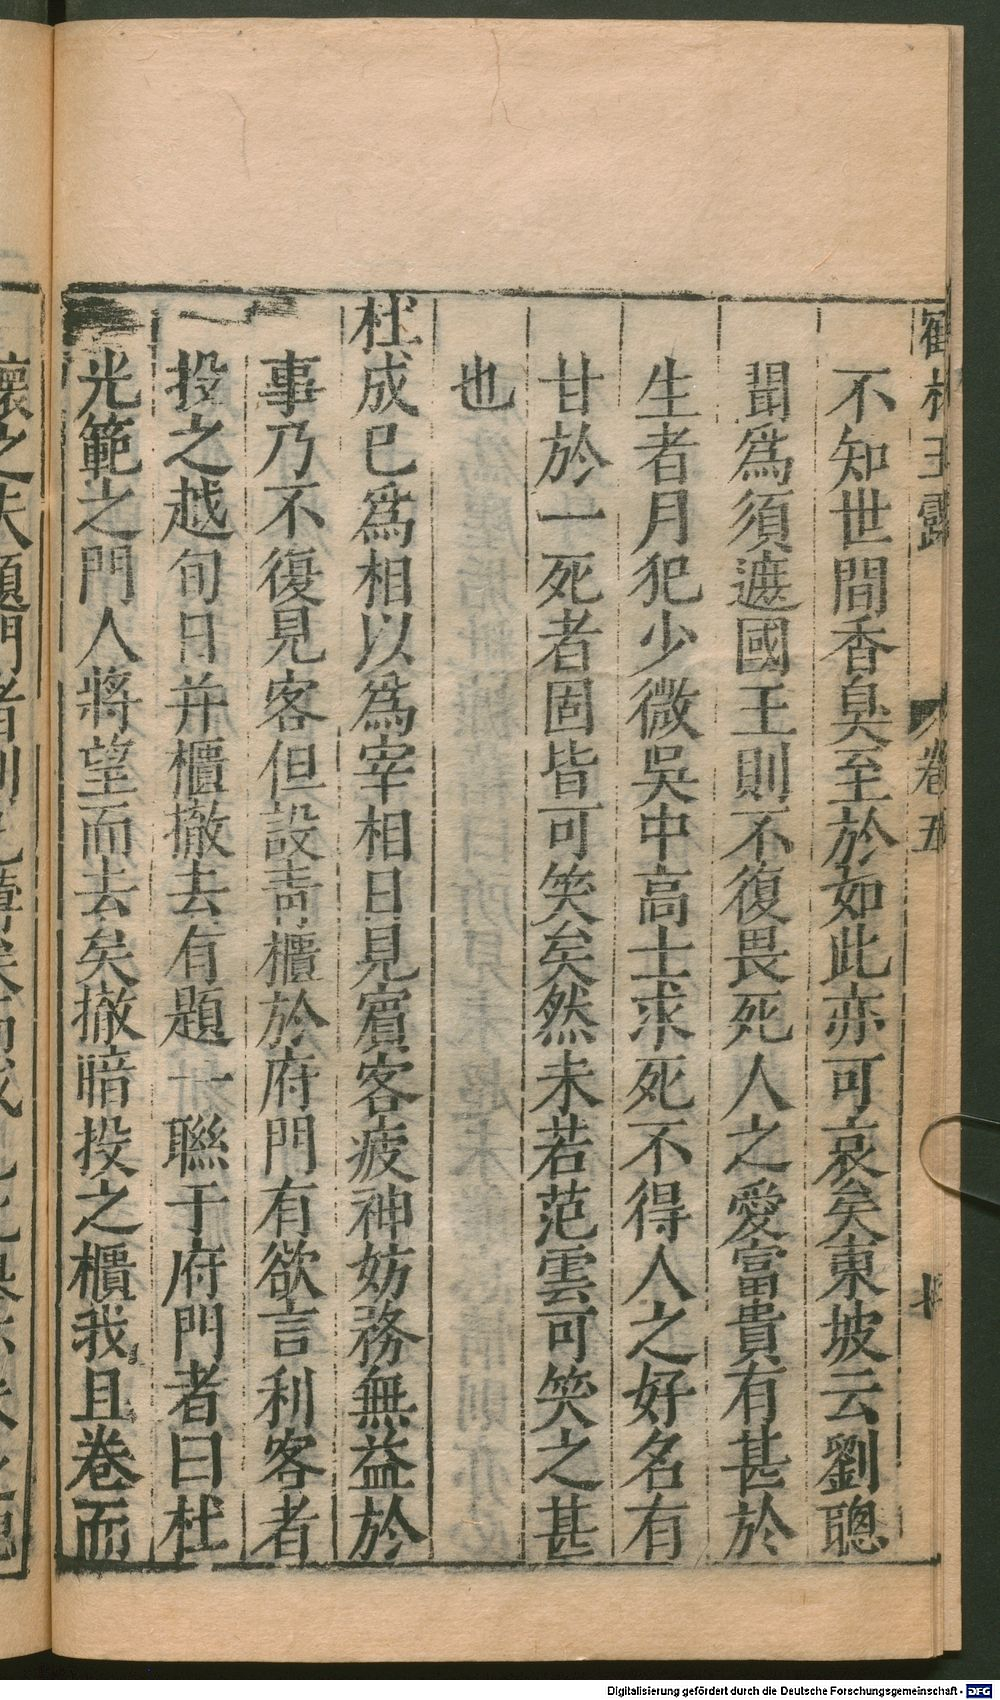 鶴林玉露
卷五
不知世間香臭至於如此亦可哀矣東坡云劉聰
聞爲須遮國王則不復畏死人之愛富貴有甚於
生者月犯少微吳中高士求死不得人之好名有
甘於一死者固皆可笑矣然未若范雲可笑之甚
也
杜成巳爲相以爲宰相日見賓客疲神妨務無益於
事乃不復見客但設青櫃於府門有欲言利客者
投之越旬日并櫃撤去有題一聯于府門者曰杜
光範之門人將望而去矣撤暗投之櫃我且卷而
Digitalisierung gefördert durch die Deutsche Forschungsgemeinschaft - DFG